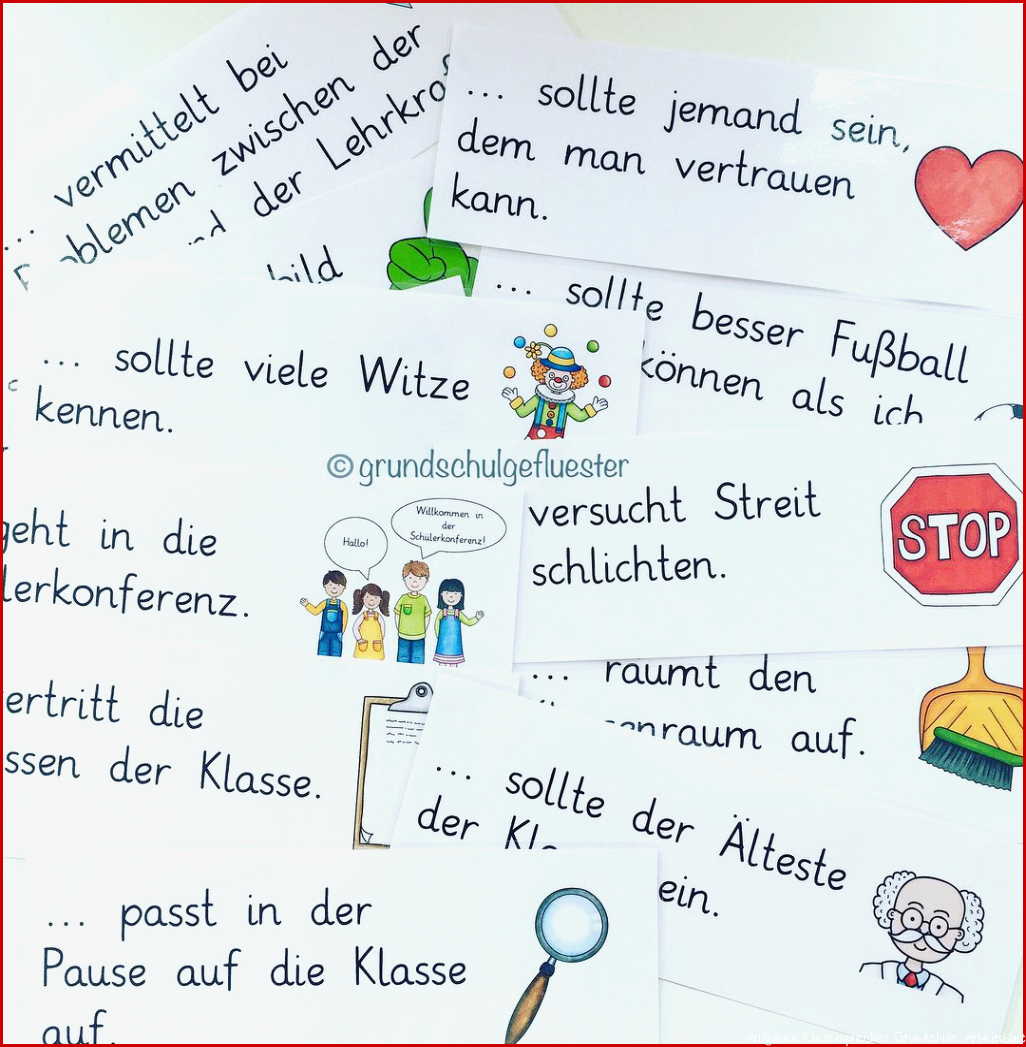 ... vermittelt bei
zwischen der
der Lehrkra
... sollte jemand sein,
dem man vertrauen
kann.
bild
... sollte besser Fußball
können als ich
... sollte viele Witze
kennen.
© grundschulgefluester
geht in die
lerkonferenz.
Hallo!
Willkommen in
der
Schülerkonferenz!
versucht Streit
schlichten.
STOP
ertritt die
ssen der Klasse.
... räumt den
enraum auf.
... sollte der Älteste
der Kl
ein.
... passt in der
Pause auf die Klasse
auf.